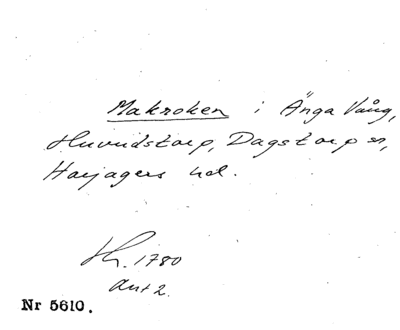 Makroken i Änga Vång,
Huvudstorp, Dagstorp sn,
Harjagers hd.
Lh. 1780
akt 2.
Nr 5610.